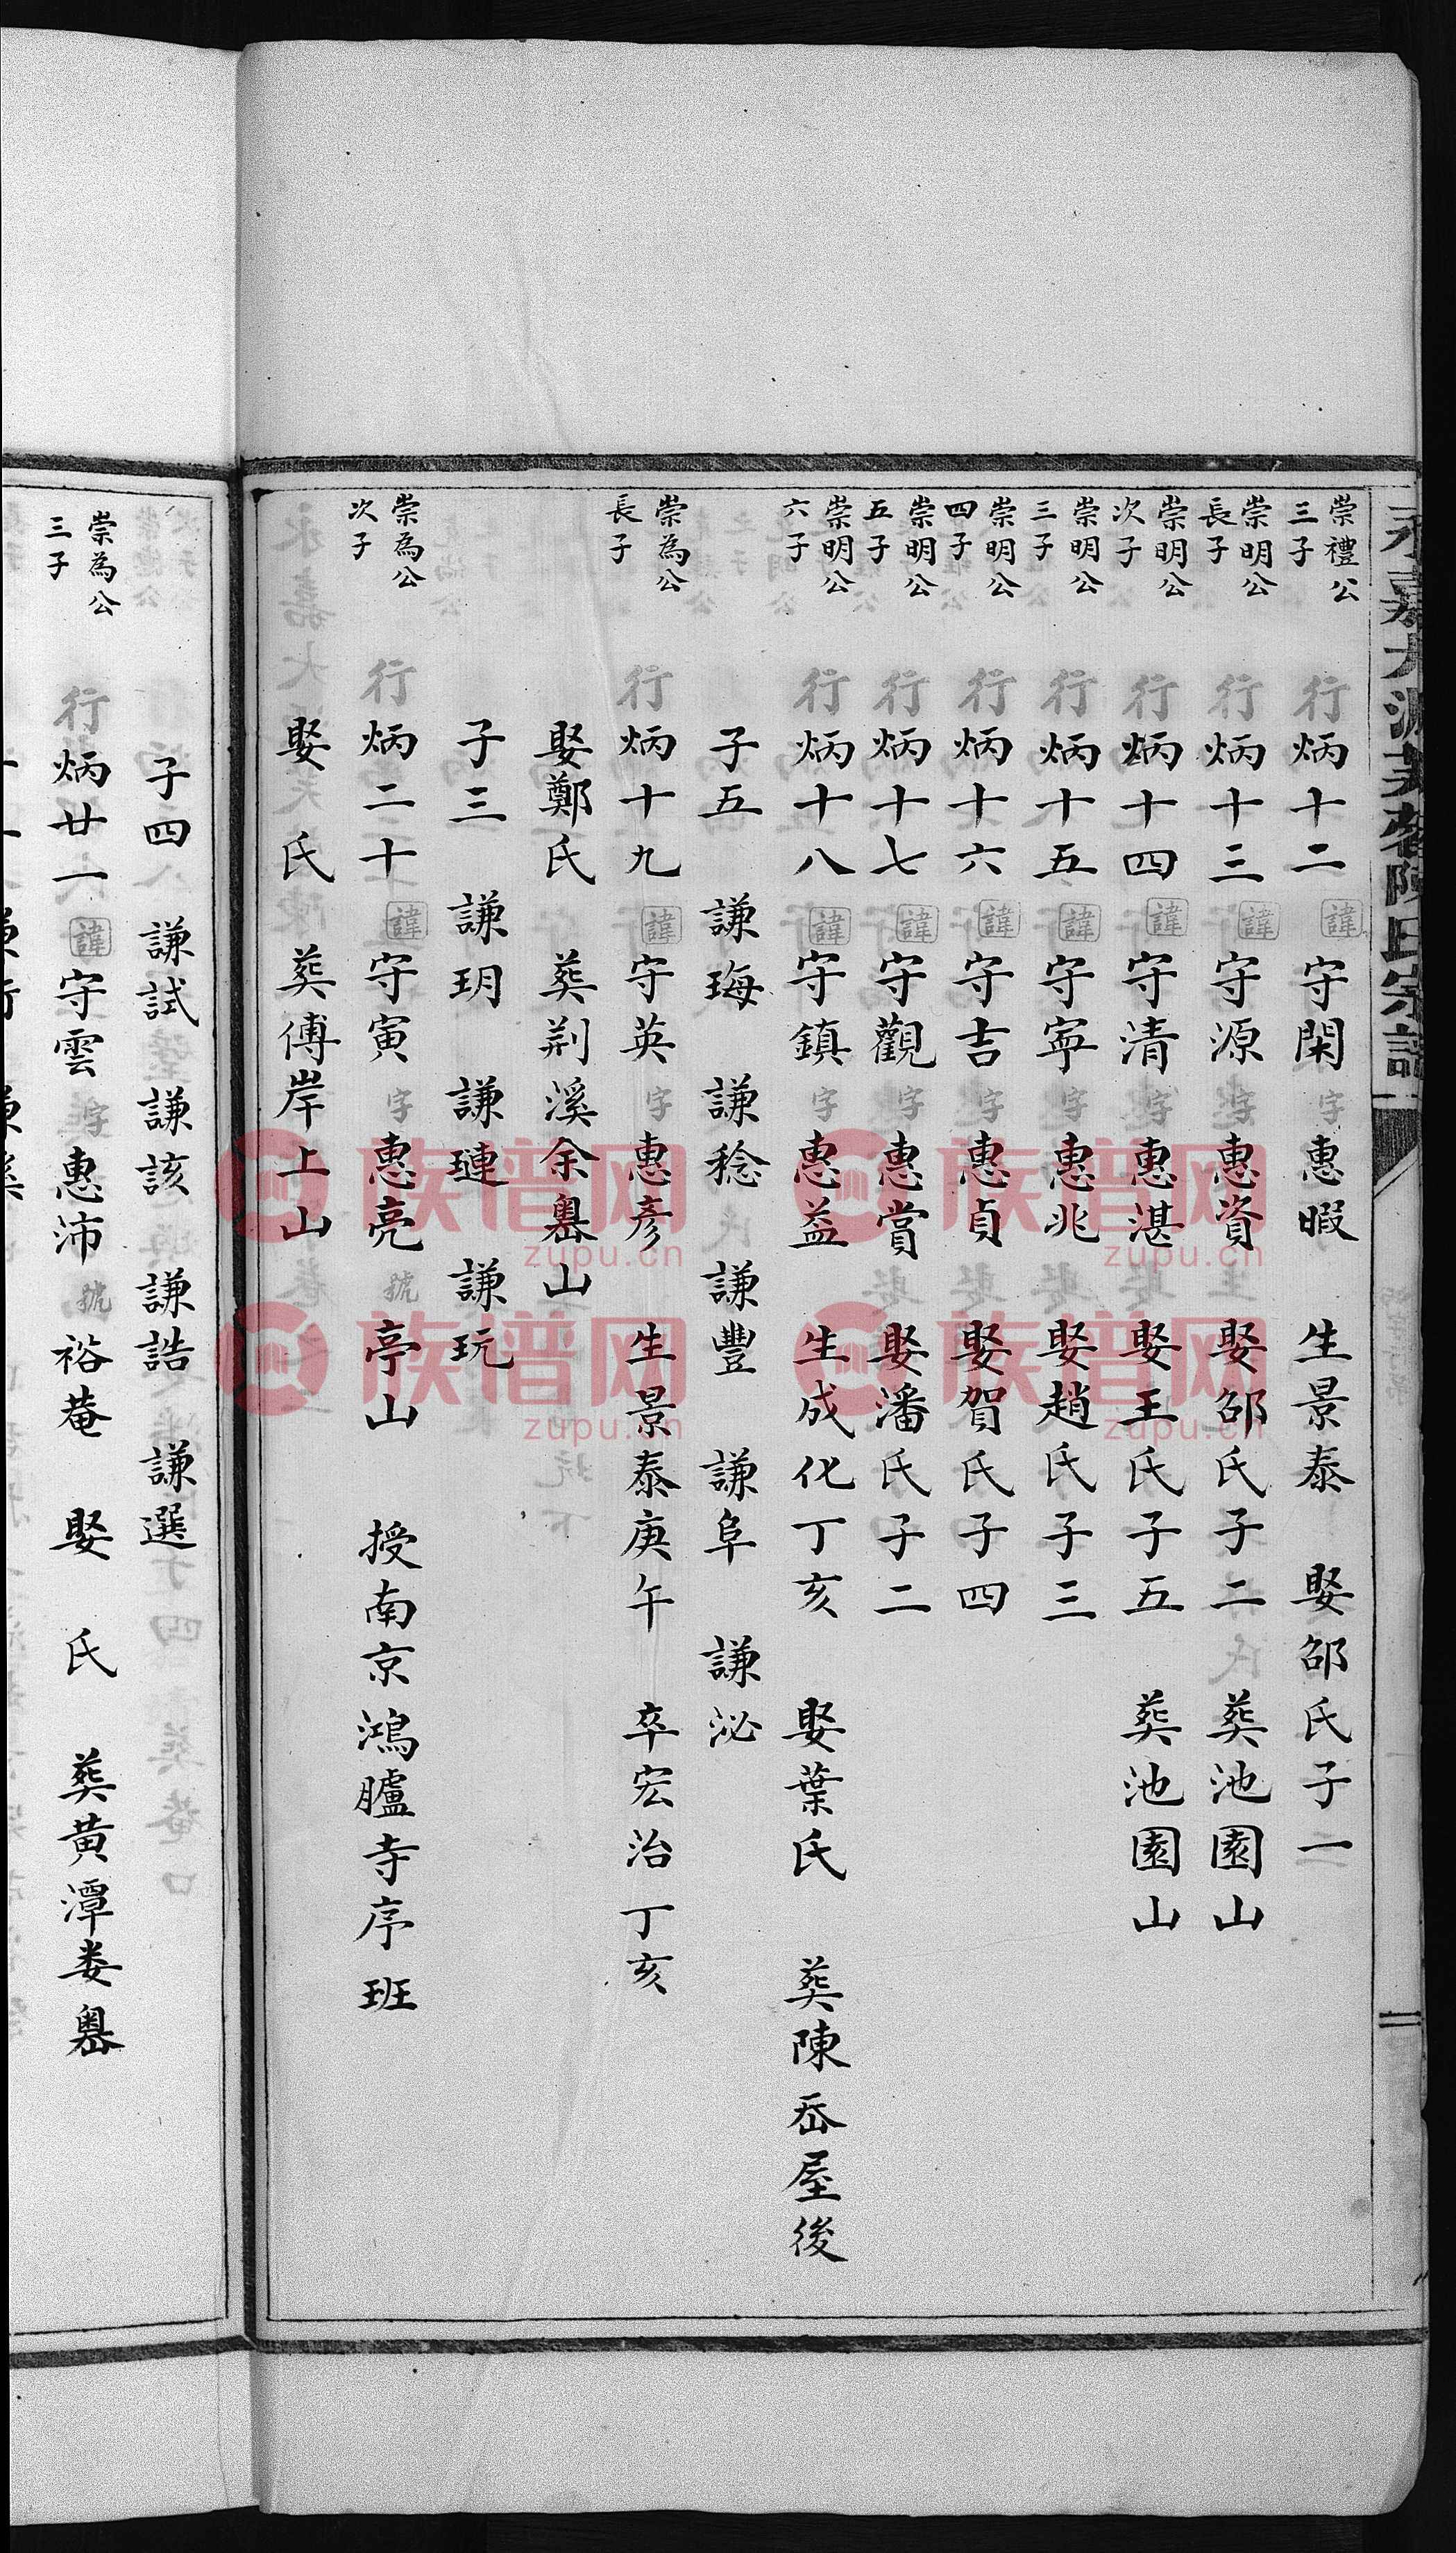 崇禮公三子 行炳十二 諱守閑 字惠暇 生景泰 娶邵氏子一
崇明公長子 行炳十三 諱守源 字惠資 娶邵氏子二 葬池園山
崇明公次子 行炳十四 諱守清 字惠湛 娶王氏子五 葬池園山
崇明公三子 行炳十五 諱守寧 字惠兆 娶趙氏子三
崇明公四子 行炳十六 諱守吉 字惠貞 娶賀氏子四
崇明公五子 行炳十七 諱守觀 字惠賞 娶潘氏子二
崇明公六子 行炳十八 諱守鎮 字惠益 生成化丁亥 娶葉氏 葬陳岙屋後
子五 謙海 謙稔 謙豐 謙阜 謙泌
崇為公長子 行炳十九 諱守英 字惠彥 生景泰庚午 卒宏治丁亥
娶鄭氏 葬荆溪余嶴山
子三 謙玥 謙璉 謙玩
崇為公次子 行炳二十 諱守寅 字惠亮 號亭山 授南京鴻臚寺序班
娶 氏 葬傅岸上山
子四 謙試 謙該 謙誥 謙選
崇為公三子 行炳廿一 諱守雲 字惠沛 號裕菴 娶 氏 葬黄潭娄嶴
族谱网
zupu.cn
族谱网
zupu.cn
族谱网
zupu.cn
族谱网
zupu.cn